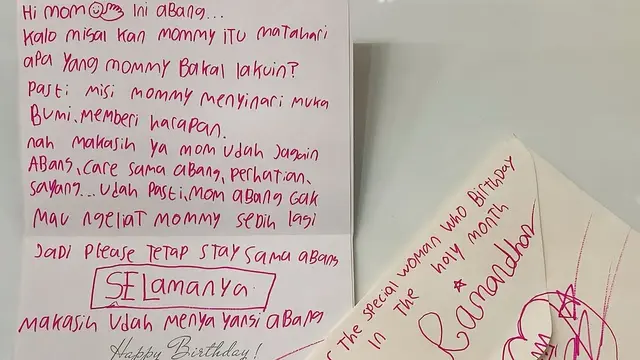 Hi mom Ini aBang...
Kalo misal kan mommy ITU mataHari
apa yang mommy Bakal lakuin?
Pasti misi mommy menyinari muka
Bumi, memberi harapan.
nah makasih ya mom udah Jagain
ABang, care sama aBang, perhatian,
sayang... udah pasti, mom aBang Gak
mau ngeliat mommy sedih lagi
Jadi please Tetap stay sama aBang
SELamanya
makasih udah menyayansi aBang
Happy Birthday!
The special woman who Birthday
In The holy month
Ramandhan